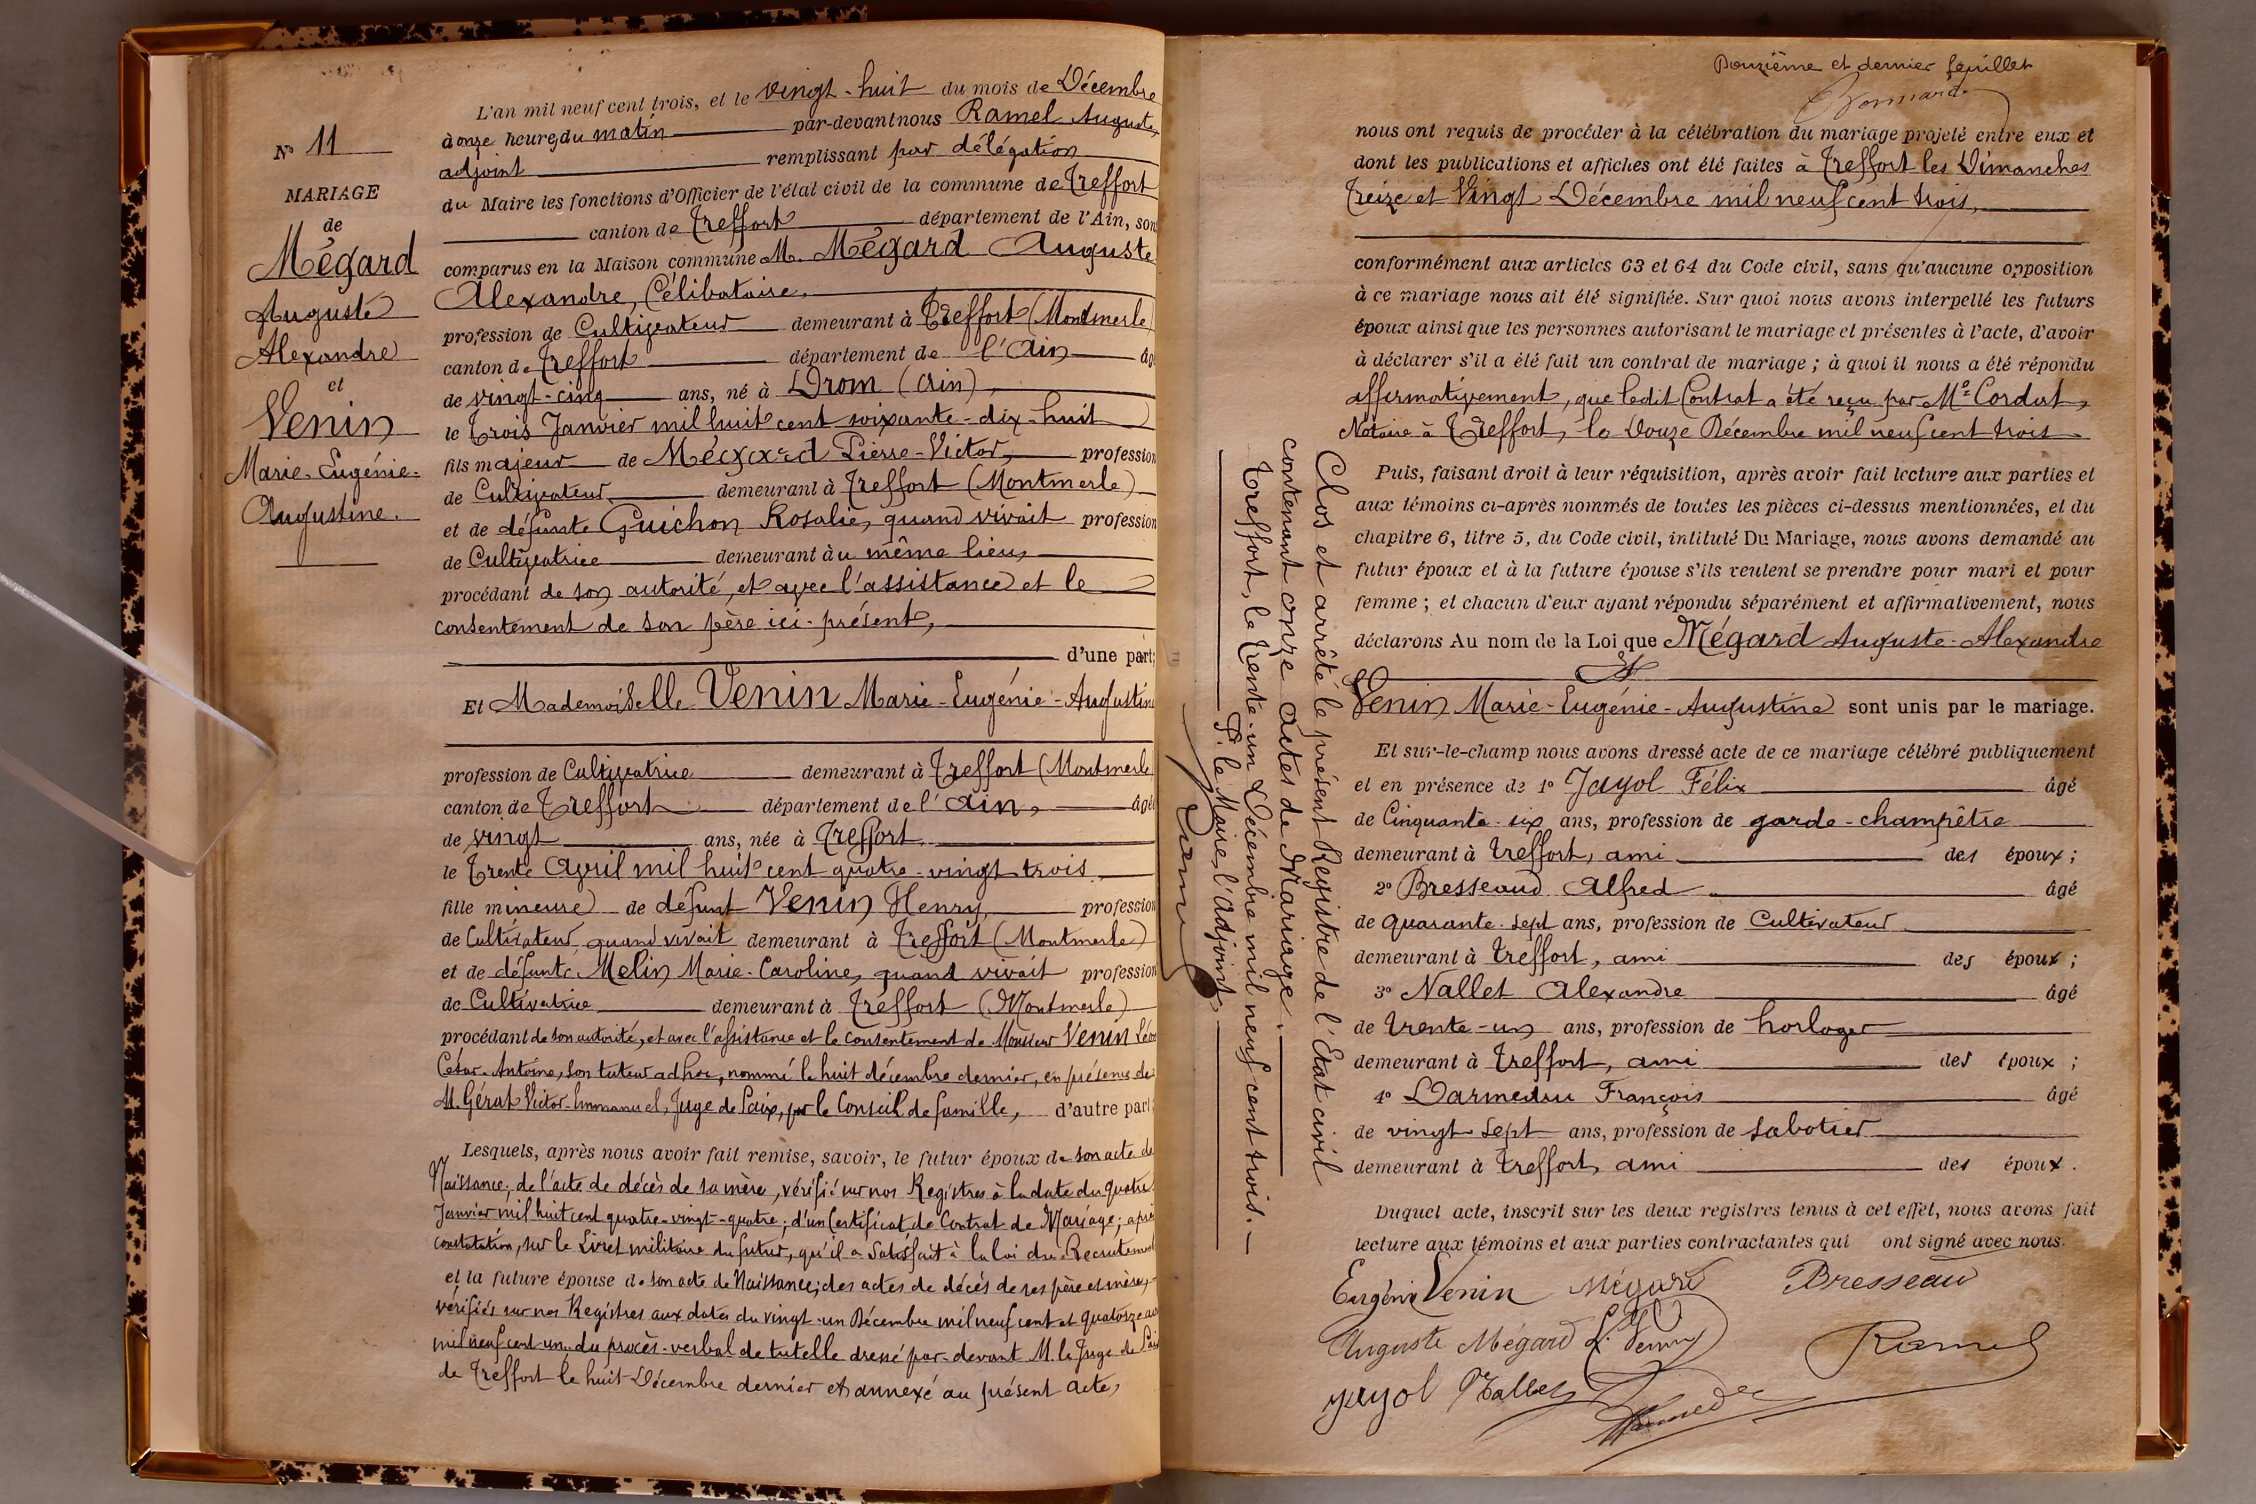 N° 11
MARIAGE
de
Mégard
Auguste
Alexandre
et
Venin
Marie-Eugénie-
Augustine.
L'an mil neuf cent trois, et le vingt-huit du mois de Décembre
à onze heures du matin par-devant nous Ramel Auguste,
adjoint remplissant par délégation
du Maire les fonctions d'Officier de l'état civil de la commune de Treffort
canton de Treffort département de l'Ain, sont
comparus en la Maison commune M. Mégard Auguste
Alexandre, Célibataire,
profession de Cultivateur demeurant à Treffort (Montmerle)
canton de Treffort département de l'Ain âgé
de vingt-cinq ans, né à Drom (Ain),
le Trois Janvier mil huit cent soixante-dix-huit
fils majeur de Mégard Pierre-Victor, profession
de Cultivateur, demeurant à Treffort (Montmerle)
et de défunte Guichon Rosalie, quand vivait profession
de Cultivatrice demeurant au même lieu,
procédant de son autorité, et avec l'assistance et le
consentement de son père ici-présent,
d'une part;
Et Mademoiselle Venin Marie-Eugénie-Augustine
profession de Cultivatrice demeurant à Treffort (Montmerle
canton de Treffort département de l'Ain, âgée
de vingt ans, née à Treffort,
le Trente Avril mil huit cent quatre-vingt-trois
fille mineure de défunt Venin Henry, profession
de Cultivateur quand vivait demeurant à Treffort (Montmerle)
et de défunte Melin Marie-Caroline, quand vivait profession
de Cultivatrice demeurant à Treffort (Montmerle)
procédant de son autorité, et avec l'assistance et le consentement de Monsieur Venin Léon
César-Antoine, son tuteur ad hoc, nommé le huit décembre dernier, en présence de
M. Gérat Victor-Emmanuel, Juge de Paix, par le Conseil de famille, d'autre part;
Lesquels, après nous avoir fait remise, savoir, le futur époux de son acte de
Naissance; de l'acte de décès de sa mère, vérifié sur nos Registres à la date du quatre
Janvier mil huit cent quatre-vingt-quatre; d'un Certificat de Contrat de Mariage; après
constatation, sur le Livret militaire du futur, qu'il a satisfait à la loi du Recrutement
et la future épouse de son acte de Naissance; des actes de décès de ses père et mère,
vérifiés sur nos Registres aux dates du vingt-un Décembre mil neuf cent et quatorze
mil neuf cent-un.. du procès-verbal de tutelle dressé par-devant M. le Juge de Paix
de Treffort le huit Décembre dernier et annexé au présent acte,
Clos et arrêté le présent Registre de l'Etat civil
contenant onze actes de Mariage.
Treffort, le Trente-un Décembre mil neuf cent trois.
P. le Maire, l'adjoint,
Ramel
Douzième et dernier feuillet
nous ont requis de procéder à la célébration du mariage projeté entre eux et
dont les publications et affiches ont été faites à Treffort les Dimanches
Treize et Vingt Décembre mil neuf cent trois,
conformément aux articles 63 et 64 du Code civil, sans qu'aucune opposition
à ce mariage nous ait été signifiée. Sur quoi nous avons interpellé les futurs
époux ainsi que les personnes autorisant le mariage et présentes à l'acte, d'avoir
à déclarer s'il a été fait un contrat de mariage; à quoi il nous a été répondu
affirmativement, que ledit Contrat a été reçu par Me Cordat,
Notaire à Treffort, le Douze Décembre mil neuf cent trois
Puis, faisant droit à leur réquisition, après avoir fait lecture aux parties et
aux témoins ci-après nommés de toutes les pièces ci-dessus mentionnées, et du
chapitre 6, titre 5, du Code civil, intitulé Du Mariage, nous avons demandé au
futur époux et à la future épouse s'ils veulent se prendre pour mari et pour
femme; et chacun d'eux ayant répondu séparément et affirmativement, nous
déclarons Au nom de la Loi que Mégard Auguste-Alexandre
Et
Venin Marie-Eugénie-Augustine sont unis par le mariage.
Et sur-le-champ nous avons dressé acte de ce mariage célébré publiquement
et en présence de 1° Jayol Félix âgé
de Cinquante-six ans, profession de garde-champêtre
demeurant à Treffort, ami des époux;
2° Bresseaud Alfred âgé
de Quarante-sept ans, profession de Cultivateur
demeurant à Treffort, ami des époux;
3° Nallet Alexandre âgé
de Trente-un ans, profession de horloger
demeurant à Treffort, ami des époux;
4° Darmedru François âgé
de vingt-sept ans, profession de sabotier
demeurant à Treffort, ami des époux.
Duquel acte, inscrit sur les deux registres tenus à cet effet, nous avons fait
lecture aux témoins et aux parties contractantes qui ont signé avec nous.
Eugénie Venin Mégard Bresseau
Auguste Mégard L. Venin Ramel
Jayol Nallet